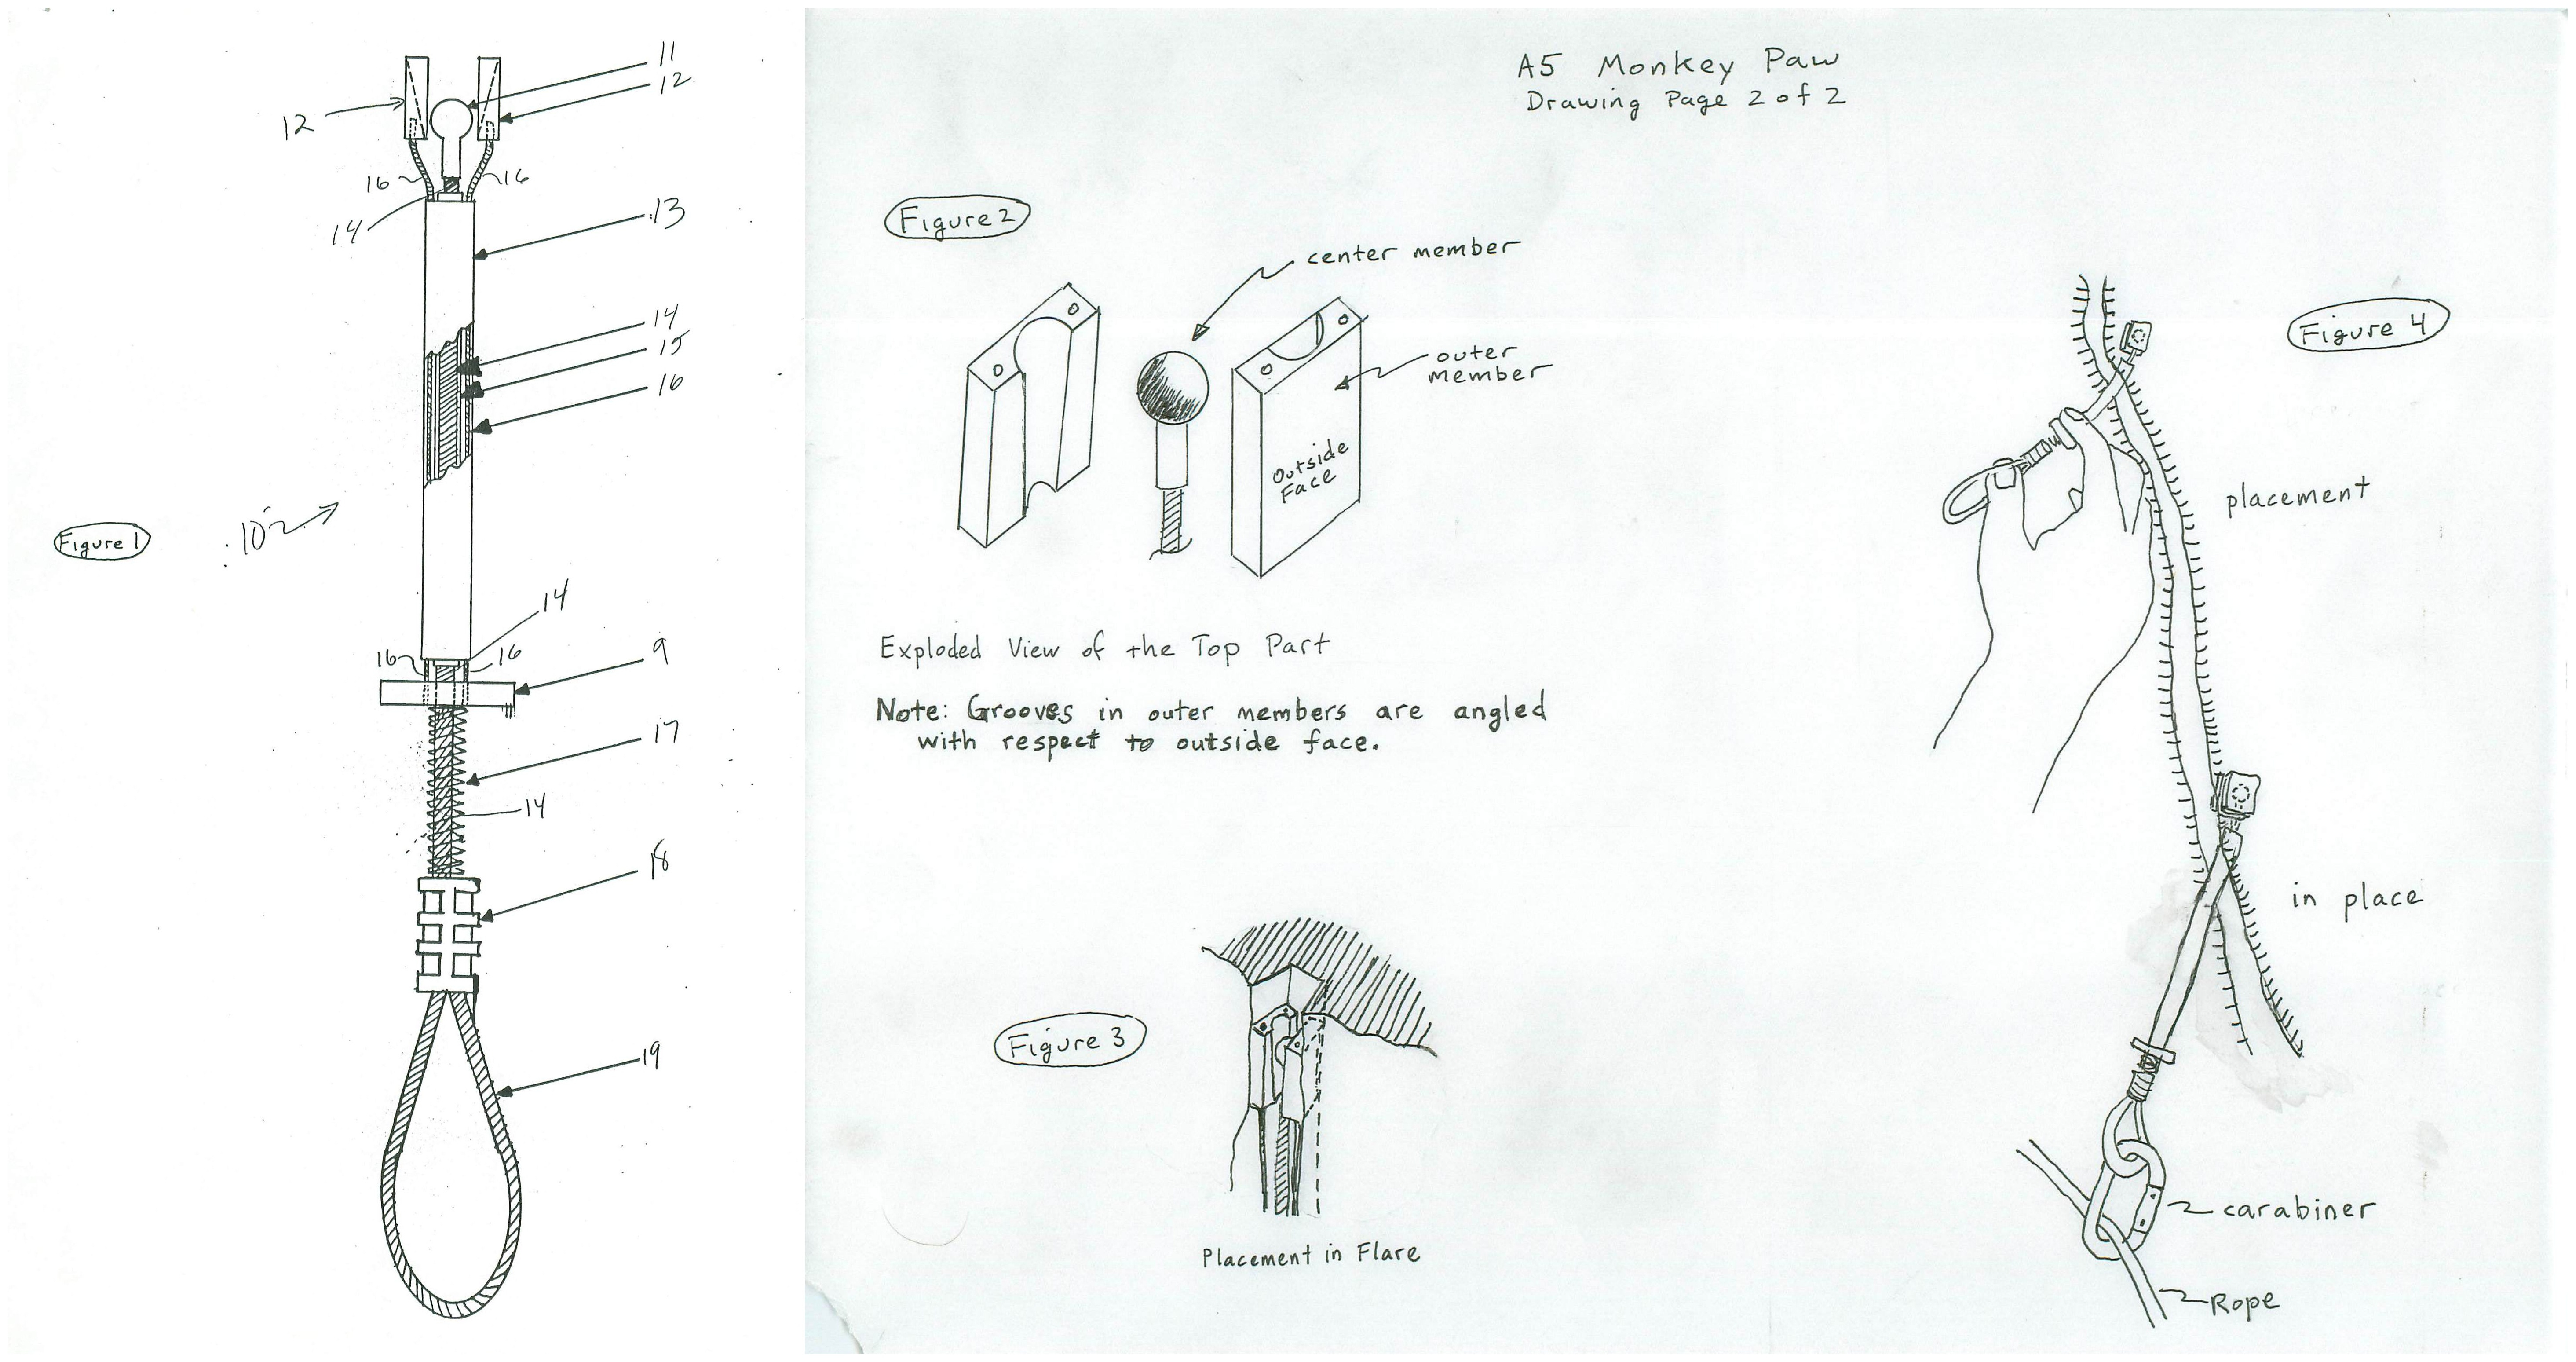 11
12
12
16
16
14
13
14
15
16
Figure 1
10
14
16
16
9
17
14
18
19
A5 Monkey Paw
Drawing Page 2 of 2
Figure 2
center member
outer
member
Outside
Face
Exploded View of the Top Part
Note: Grooves in outer members are angled
with respect to outside face.
Figure 3
Placement in Flare
Figure 4
placement
in place
carabiner
Rope